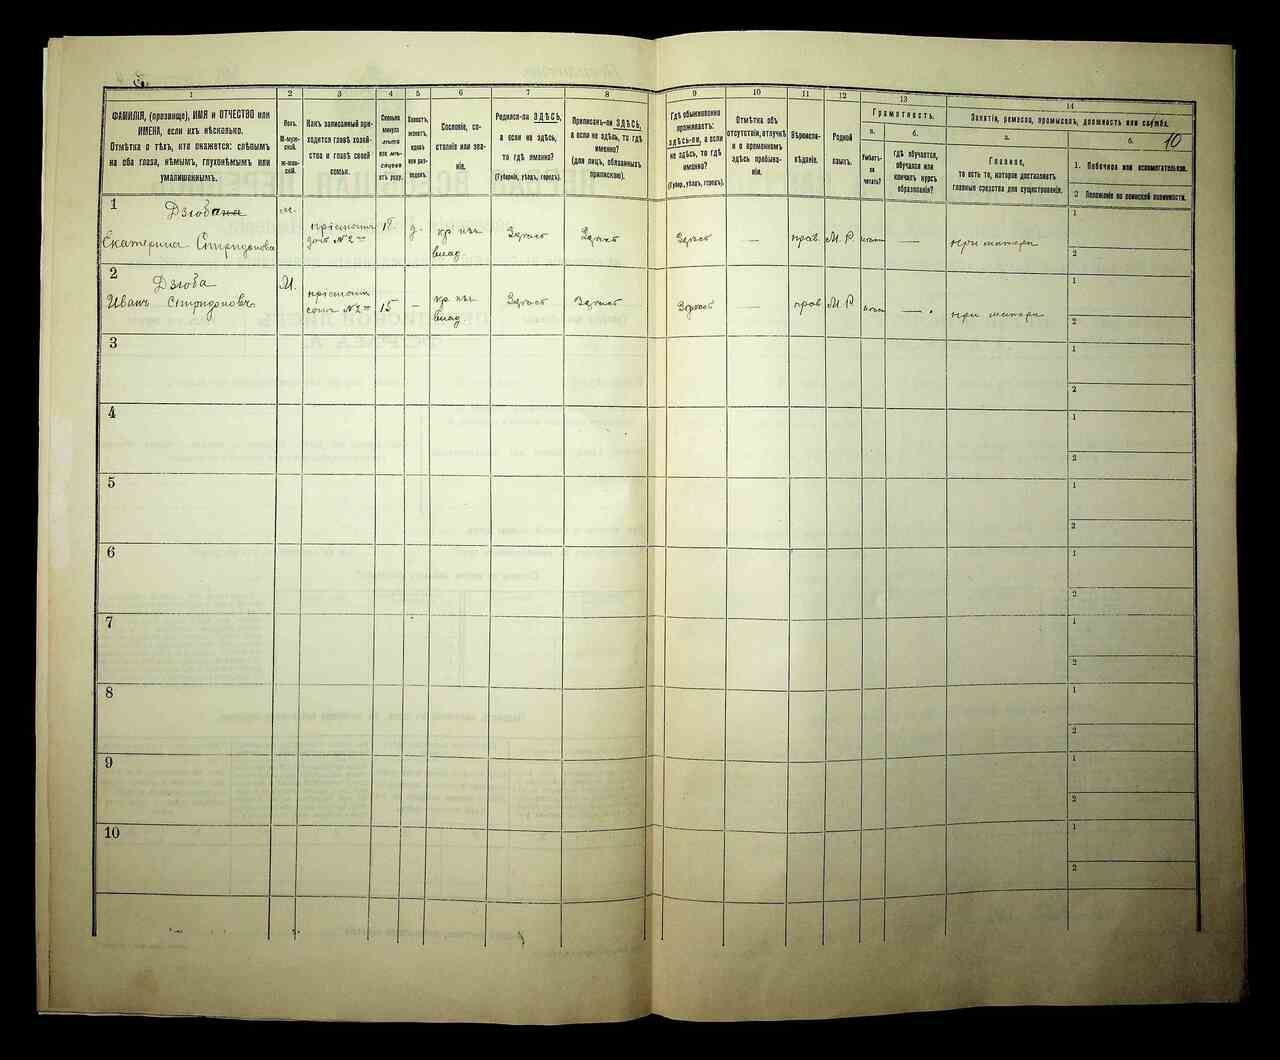 1
2
3
4
5
6
7
8
ФАМИЛІЯ, (прозвище), ИМЯ и ОТЧЕСТВО или
ИМЕНА, если ихъ нѣсколько.
Отмѣтка о тѣхъ, кто окажется: слѣпымъ
на оба глаза, нѣмымъ, глухонѣмымъ или
умалишеннымъ.
Полъ.
М-муж-
ской.
ж-жен-
скій.
Какъ записанный при-
ходится главѣ хозяй-
ства и главѣ своей
семьи.
Сколько
минуло
лѣтъ
или мѣ-
сяцевъ
отъ роду.
Холостъ,
женатъ,
вдовъ
или раз-
веденъ.
Сословіе, со-
стояніе или зва-
ніе.
Родился-ли ЗДѢСЬ,
а если не здѣсь,
то гдѣ именно?
(Губернія, уѣздъ, городъ).
Приписанъ-ли ЗДѢСЬ,
а если не здѣсь, то гдѣ
именно?
(для лицъ, обязанныхъ
припискою).
1
Дзюбана
Екатерина Спиридонова
18
д.
Здѣсь
Здѣсь
2
Дзюба
Иванъ Спиридоновъ
М.
15
—
Здѣсь
Здѣсь
3
4
5
6
7
8
9
10
9
10
11
12
13
14
Гдѣ обыкновенно
проживаетъ:
здѣсь-ли, а если
не здѣсь, то гдѣ
именно?
(Губер., уѣздъ, городъ).
Отмѣтка объ
отсутствіи, отлучкѣ
и о временномъ
здѣсь пребыва-
ніи.
Вѣроиспо-
вѣданіе.
Родной
языкъ.
Грамотность.
а.
Умѣетъ-
ли
читать?
б.
гдѣ обучается,
обучался или
кончилъ курсъ
образованія?
Занятіе, ремесло, промыселъ, должность или служба.
а.
Главное,
то есть то, которое доставляетъ
главныя средства для существованія.
б.
10
1. Побочное или вспомогательное.
2 Положеніе по воинской повинности.
Здѣсь
—
прав.
М. Р.
—
при матери
1
2
Здѣсь
—
прав
М. Р
—
при матери
1
2
1
2
1
2
1
2
1
2
1
2
1
2
1
2
1
2